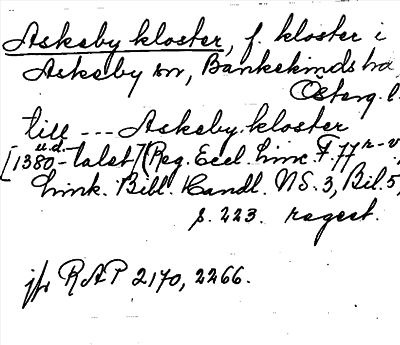 Askeby kloster, f. kloster i
Askeby sn, Bankekinds hd,
Österg. l.
till --- Askeby kloster
[u.d. 1380-talet] (Reg. Eccl. Linc. F. 77 r-v,
Link. Bibl. Handl. NS. 3, Bil. 5,
s. 223. regest.
jfr RAP 2170, 2266.